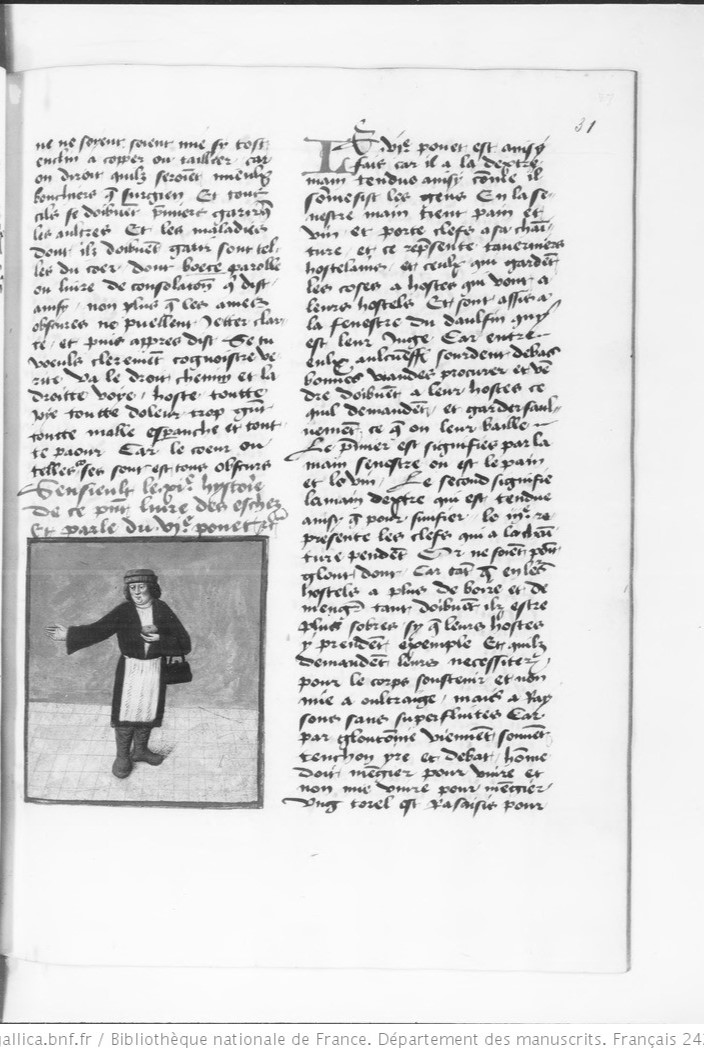 31
ne ne soyent soient mie sy tost
enclin a copper ou taillier car
on diroit quilz seroient mieulx
bouchiers q̃ surgien Et tout
cilz se doibuent p̃miers garir q̃
les aultres Et les maladies
dont ilz doibuent garir sont tel
les du coer dont boece parolle
ou liure de consolation q̃ dist
ainsy non plus q̃ les
obscures ne puellent Jetter clar
te et puis appres dist Se tu
voeuls clerement cognoistre ve
rite va le droit chemin et la
droitte voye hoste toutte
toutte doleur trop
toutte malle et tout
te paour Car le coeur ou
telles sont est tous obscurs
Sensieult le hystoire
De ce pñt liure des eschez
Et parle du vjᵉ ponet
Le vjᵉ ponet est ainsy
fait car il a la dextre
main tendue ainsy come il
somesist les gens En la se
nestre main tient pain et
vin et porte clefs a sa chain
ture et ce rep̃sente taverniers
hostelains et ceulx qui gardent
les coses a hostes qui vont a
leurs hostels Et sont assis a
la fenestre du daulfin quy
est leur Juge Car entre
eulx sourdent debas
bonnes viandes procurer et ve
dre doibuent a leur hostes ce
quil demandent et garder saul
uement ce q̃ on leur baille
Le p̃mier est signifies par la
main senestre ou est le pain
et le vin Le second signifie
la main dextre qui est tendue
ainsy q̃ pour le iijᵉ re
presente les clefs qui a la chain
ture pendent ne soient point
glout dont Car tant q̃ en les
hostels a plus de boire et de
menger tant doibuent ilz estre
plus sobres sy q̃ leurs hostes
y prendent exemple Et quilz
demandent leurs necessitez
pour le corps soustenir et non
mie a oultraige mais a Ray
sons sans superfluites Car
par gloutonie viennent souuent
tenchon yre et debat home
doit mengier pour viure et
non mie viure pour mengier
Vng torel est Rasaisis pour
gallica.bnf.fr / Bibliothèque nationale de France. Département des manuscrits. Français 24